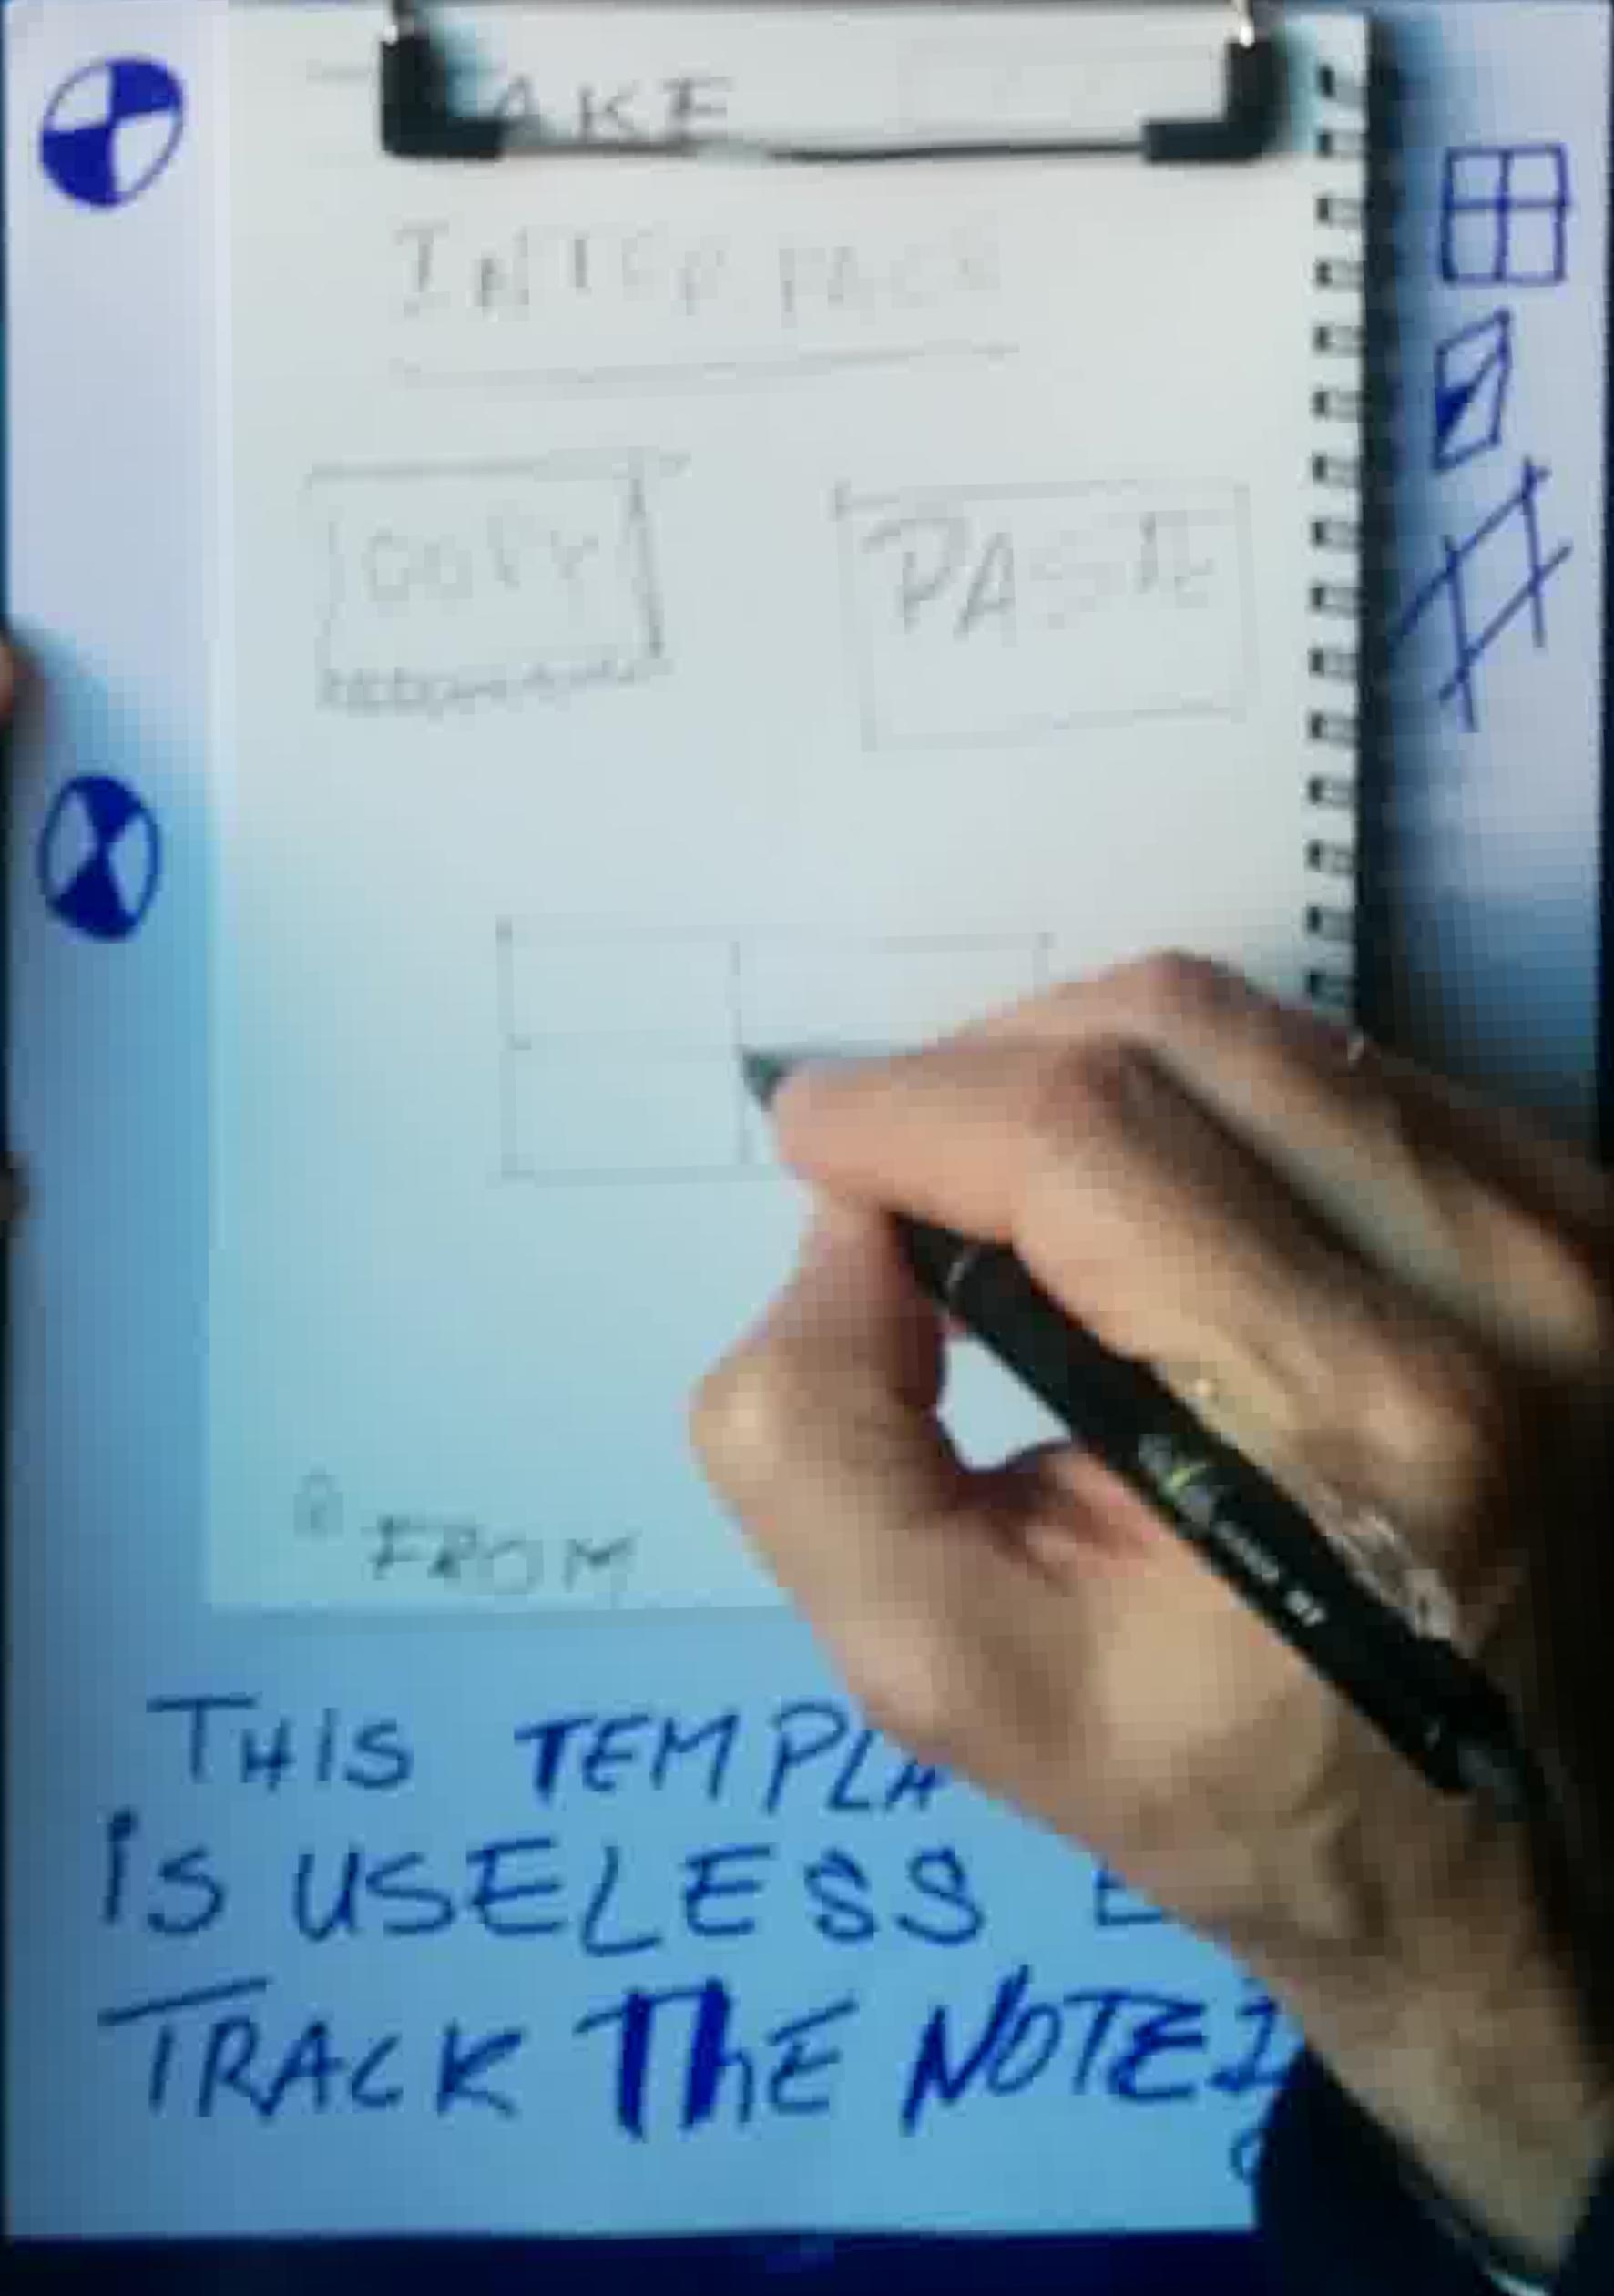 AKE
INTERFACE
COPY PASTE
FROM
THIS TEMPLA
is USELESS
TRACK ThE